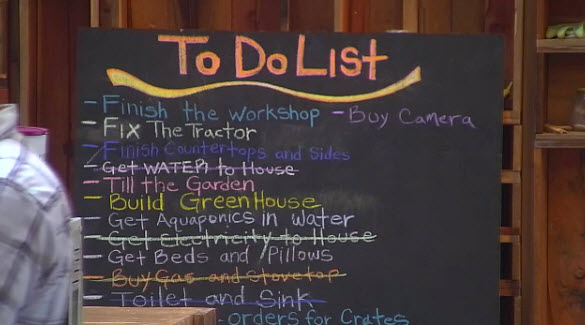 To Do List
- Finish the Workshop - Buy Camera
- Fix The Tractor
- Finish Countertops and Sides
- Get WATER to House
- Till the Garden
- Build GreenHouse
- Get Aquaponics in Water
- Get Electricity to House
- Get Beds and Pillows
- Buy Gas and Stovetop
- Toilet and Sink
- orders for Crates